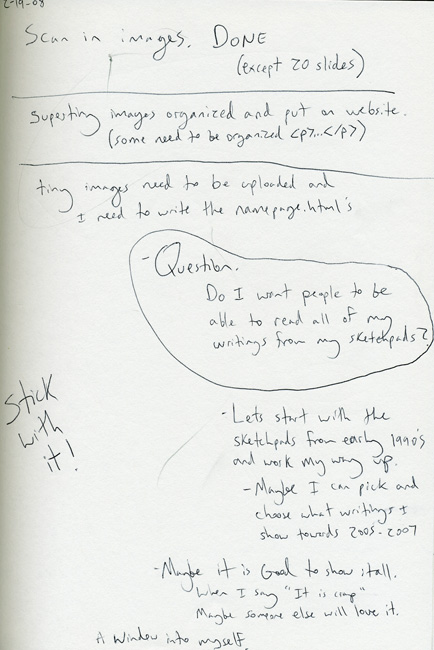 2-19-08
Scan in images. DONE
(except 20 slides)
supertiny images organized and put on website.
(some need to be organized <p>...</p>)
tiny images need to be uploaded and
I need to write the namepage.html's
- Question.
Do I want people to be
able to read all of my
writings from my sketchpads?
Stick
with
it!
- Lets start with the
sketchpads from early 1990's
and work my way up.
- Maybe I can pick and
choose what writings I
show towards 2005-2007
- Maybe it is Good to show it all.
When I say "It is crap"
Maybe someone else will love it.
A window into myself.